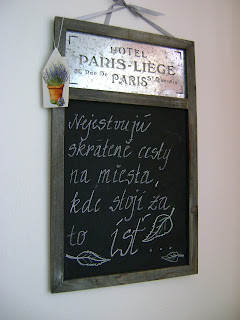 HOTEL
PARIS-LIEGE
66 Rue De St Quentin
PARIS
Nejestvujú
skrátené cesty
na miesta,
kde stojí za
to ísť...